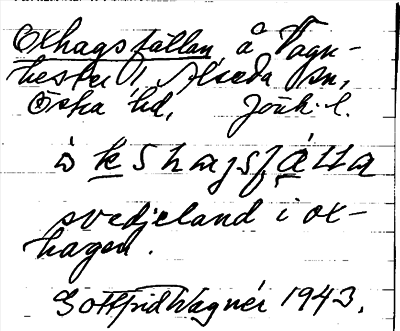 Oxhagsfällan å Vagn-
hester i Alseda sn,
Östra hd, Jönk. l.
ò k s h a g s f á l l a
svedjeland i ox-
hagen.
Gottfrid Wagnér 1943.